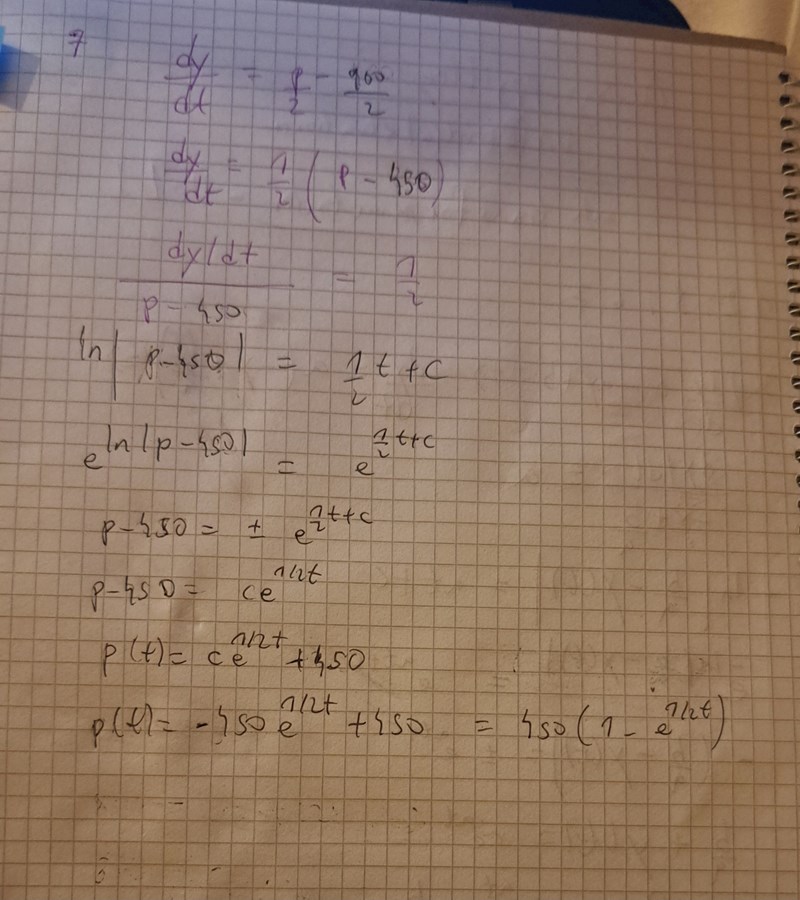 7
dy/dt = p/2 - 900/2
dy/dt = 1/2 (p - 450)
(dy/dt)/(p - 450) = 1/2
ln|p-450| = 1/2 t + c
e^(ln|p-450|) = e^(1/2 t+c)
p-450 = ± e^(1/2 t+c)
p-450 = ce^(1/2t)
p(t) = ce^(1/2t) +450
p(t) = -450 e^(1/2t) +450 = 450(1 - e^(1/2t))